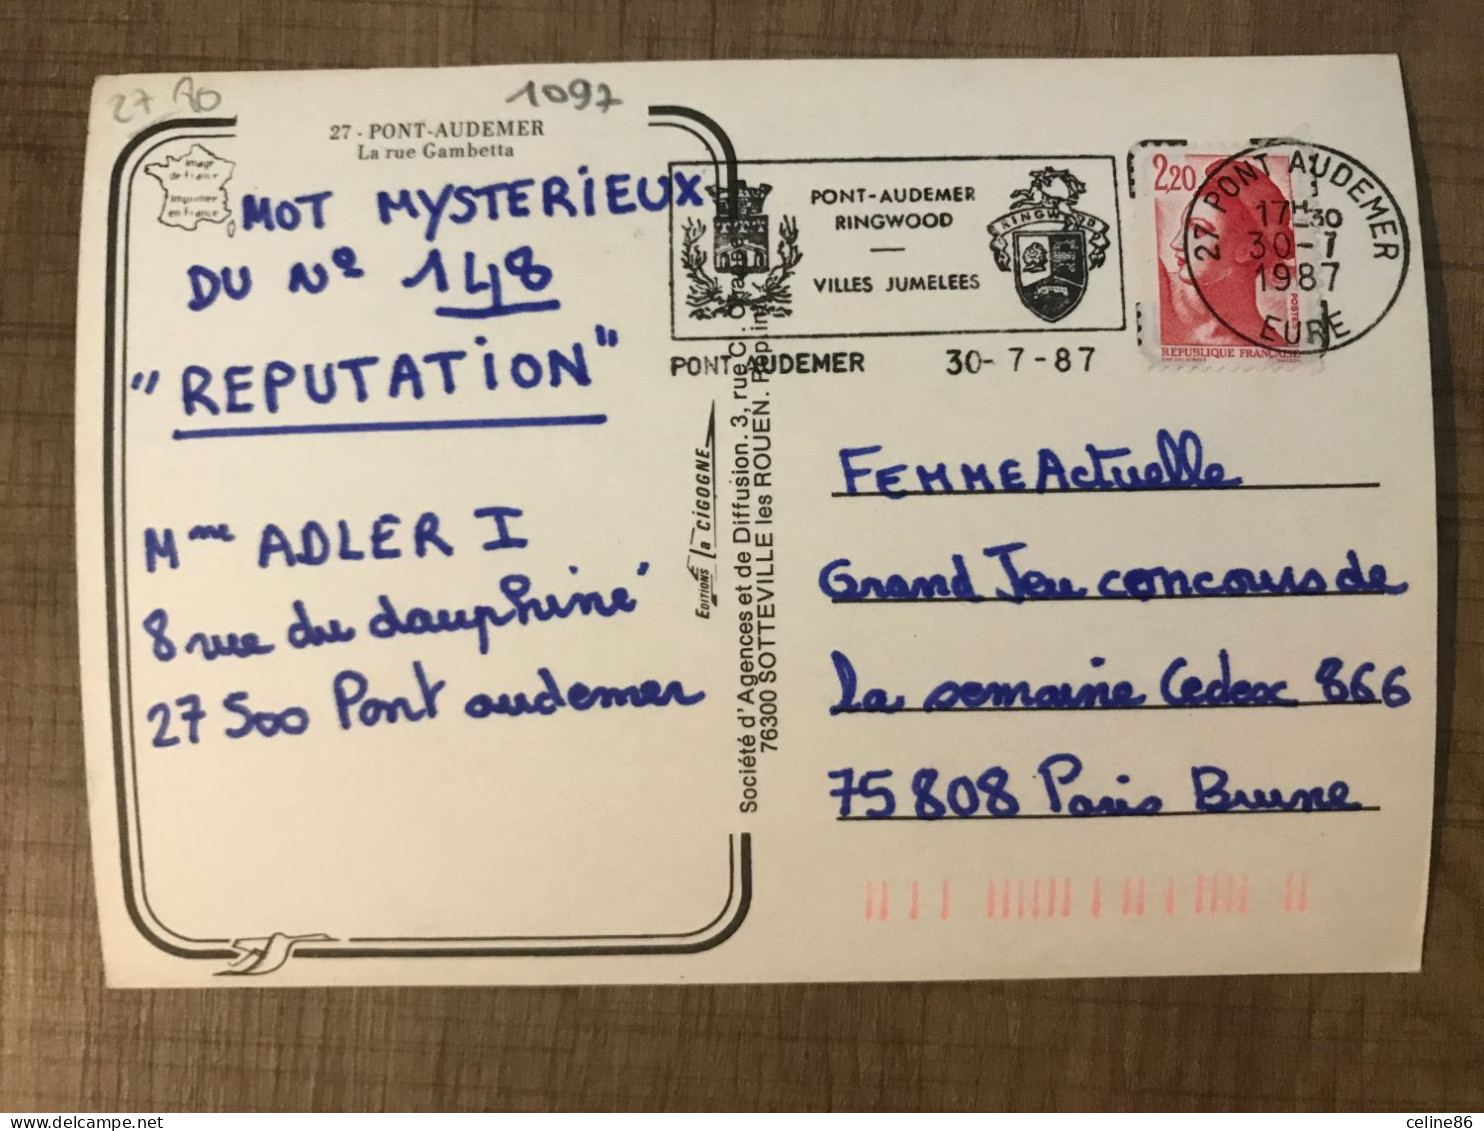 27 AO
1097
27 - PONT-AUDEMER
La rue Gambetta
Image
de France
Imprimé
en France
MOT MYSTERIEUX
DU N° 148
"REPUTATION"
Mme ADLER I
8 rue du dauphiné
27 500 Pont audemer
PONT-AUDEMER
RINGWOOD
VILLES JUMELEES
RINGWOOD
PONT AUDEMER 30-7-87
2,20
POSTES
REPUBLIQUE FRANÇAISE
27 PONT AUDEMER
17H30
30-7
1987
EURE
EDITIONS la CIGOGNE
Société d'Agences et de Diffusion. 3, rue
76300 SOTTEVILLE les ROUEN.
FEMME Actuelle
Grand Jeu concours de
la semaine Cedex 866
75808 Paris Brune
celine86